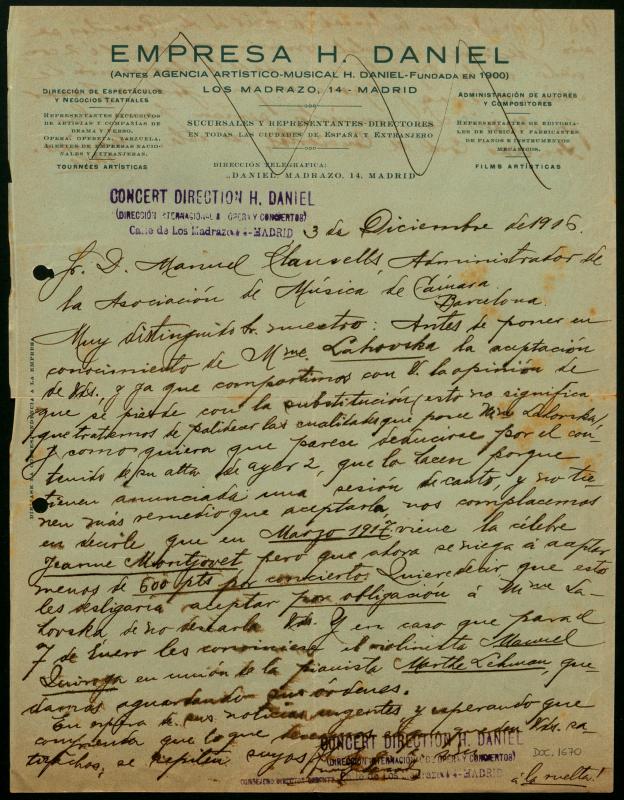 EMPRESA H. DANIEL
(ANTES AGENCIA ARTÍSTICO-MUSICAL H. DANIEL-FUNDADA EN 1900)
LOS MADRAZO, 14 - MADRID
DIRECCIÓN DE ESPECTÁCULOS
Y NEGOCIOS TEATRALES
REPRESENTANTES EXCLUSIVOS
DE ARTISTAS Y COMPAÑÍAS DE
DRAMA Y VERSO.
OPERA, OPERETA, ZARZUELA.
AGENTES DE EMPRESAS NACIO-
NALES Y EXTRANJERAS.
TOURNÉES ARTÍSTICAS
SUCURSALES Y REPRESENTANTES-DIRECTORES
EN TODAS LAS CIUDADES DE ESPAÑA Y EXTRANJERO
DIRECCIÓN TELEGRÁFICA:
„DANIEL MADRAZO, 14, MADRID
ADMINISTRACIÓN DE AUTORES
Y COMPOSITORES
REPRESENTANTES DE EDITORIA-
LES DE MÚSICA Y FABRICANTES
DE PIANOS E INSTRUMENTOS
MECÁNICOS.
FILMS ARTÍSTICAS
CONCERT DIRECTION H. DANIEL
(DIRECCIÓN INTERNACIONAL DE OPERA Y CONCIERTOS)
Calle de Los Madrazo 14-MADRID
3 de Diciembre de 1916.
Sr. D. Manuel Clausells, Administrador de
la Asociación de Música de Cámara
Barcelona.
Muy distinguido Sr. nuestro: Antes de poner en
conocimiento de Mme. Lahovska la aceptación
de Vds, y ya que compartimos con V. la opinión de
que se pierde con la substitución (esto no significa
que tratemos de palidecer las cualidades que posee Mme Lahovska)
y como quiera que parece deducirse por el con-
tenido de su atta. de ayer 2, que lo hacen porque
tienen anunciada una sesión de canto, y no tie-
nen más remedio que aceptarla, nos complacemos
en decirle que en Marzo 1917 viene la célebre
Jeanne Montjovet pero que ahora se niega á aceptar
menos de 600 pts por conciertos. Quiere decir que esto
les desligaria aceptar por obligación á Mme La-
hovska de no desearla Vds. Y en caso que para el
7 de Enero les conviniese el violinista Manuel
Quiroga en unión de la pianista Marthe Lehman, que-
damos aguardando sus órdenes.
En espera de sus noticias urgentes y esperando que
comprenda que lo que deseamos es que queden Vds. sa-
tisfechos, se repiten suyos
CONCERT DIRECTION H. DANIEL
(DIRECCIÓN INTERNACIONAL DE OPERA Y CONCIERTOS)
Calle de Los Madrazo 14-MADRID
DOC. 1670
á la vuelta!